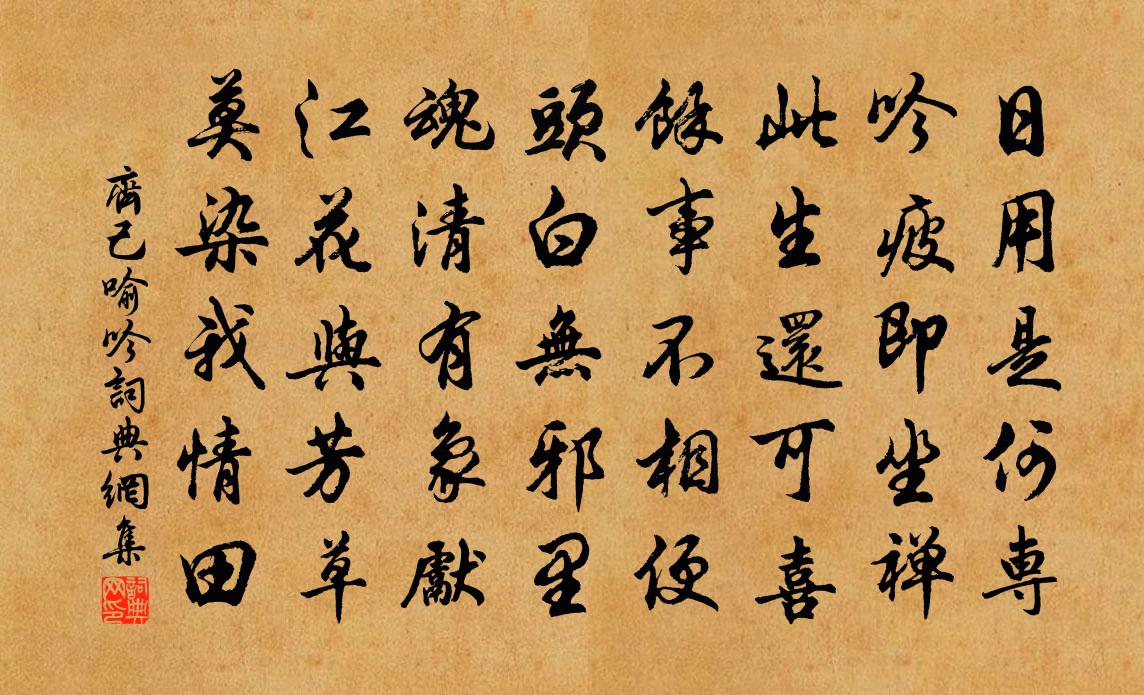 日用是何専
吟疲即坐禅
此生還可喜
餘事不相便
頭白無邪里
魂清有象獻
江花與芳草
莫染我情田
齊己喻吟詞典網集
詞典网印